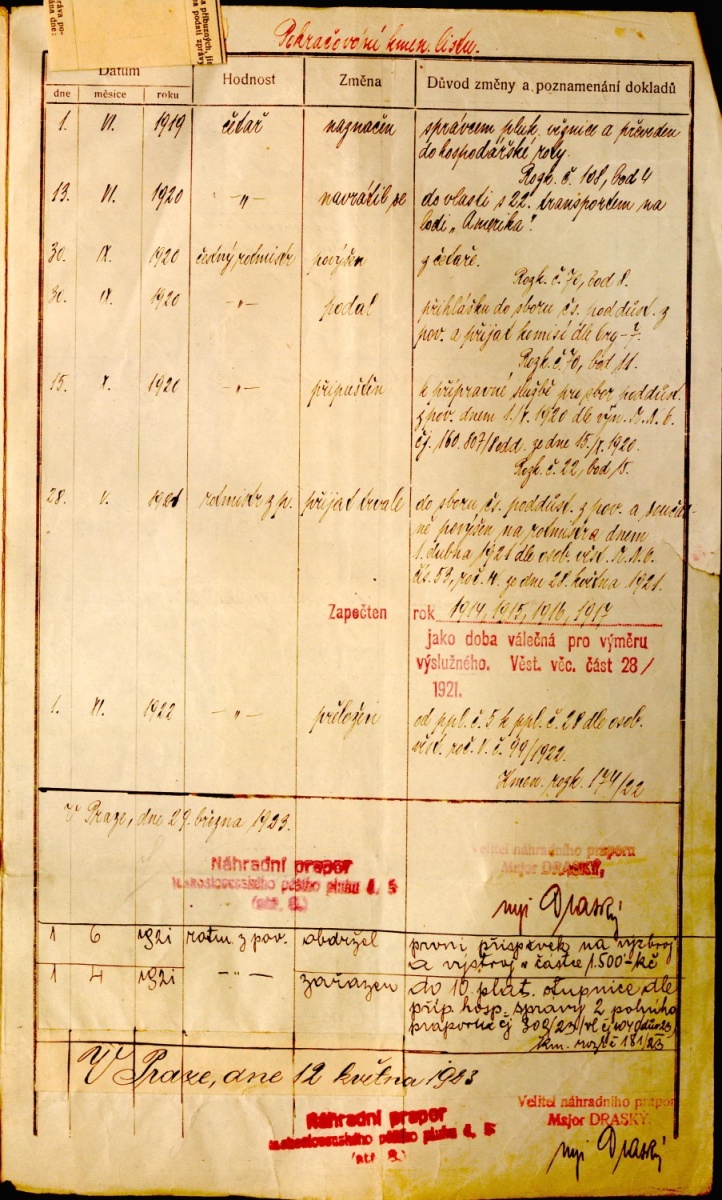 ráva po-
ána dne:
a příbuzných, ji
na podati zprávy
Pokračování kmen. listu.
Datum
Hodnost
Změna
Důvod změny a poznamenání dokladů
dne měsíce roku
1. VI. 1919 četař naznačen správcem pluk. věznice a převeden
do hospodářské roty.
Rozk. č. 108, bod 4
13. VI. 1920 -„- navrátil se do vlasti s 22. transportem na
lodi „Amerika“.
30. IX. 1920 čestný rotmistr povýšen z četaře.
Rozk. č. 70, bod 8.
30. IX. 1920 -„- podal přihlášku do sboru čs. poddůst. z
pov. a přijat komisí dle
Rozk. č. 70, bod 11.
15. X. 1920 -„- připuštěn k přípravné službě pro sbor poddůst.
z pov. dnem 1./X. 1920 dle výn.
čj. 160.807/8odd. ze dne 15./X. 1920.
Rozk. č. 22, bod 15.
28. V. 1921 rotmistr z p. přijat trvale do sboru čs. poddůst. z pov. a součas-
ně povýšen na rotmistra dnem
1. dubna 1921 dle osob. věst.
čís. 53, roč. 4. ze dne 28. května 1921.
Započten rok 1914, 1915, 1916, 1917
jako doba válečná pro výměru
výslužného. Věst. věc. část 28/
1921.
1. XI. 1922 -„- přeložen od ppl. č. 5 k ppl. č. 28 dle osob.
věst. roč. V. č. 99/1922.
Kmen. rozk. 174/22
V Praze, dne 29. března 1923.
Náhradní prapor
československého pěšího pluku č. 5
Velitel náhradního praporu
Major DRASKÝ,
mjr Draský
1 6 1921 rotm. z pov. obdržel první příspěvek na výzbroj
a výstroj v částce 1.500 Kč
1 4 1921 -„- zařazen do 10. plat. stupnice dle
příp. hosp. správy 2 polního
praporu čj 302/23
km. rozk č 181/23
V Praze, dne 12 května 1923
Náhradní prapor
československého pěšího pluku č. 5
Velitel náhradního prapor
Major DRASKÝ.
mjr Draský